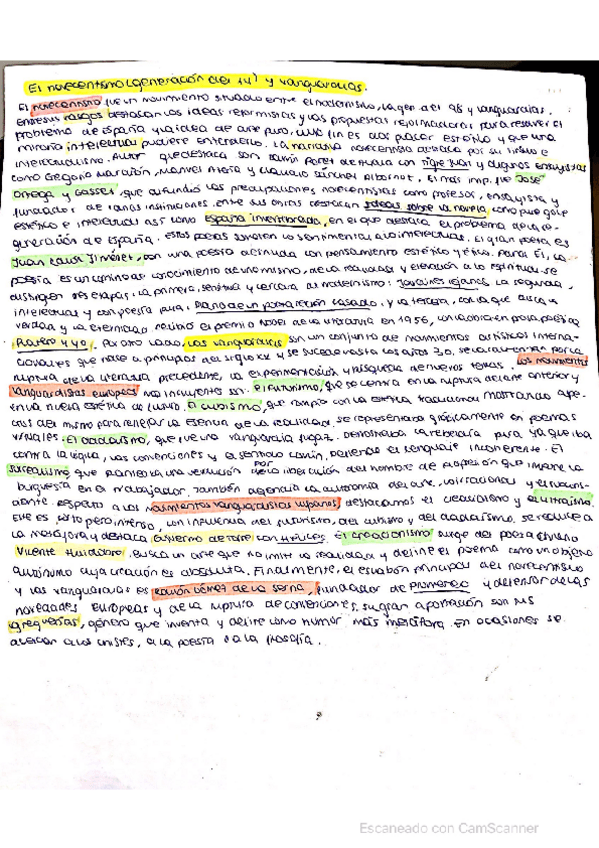 El novecentismo (generación del 14) y vanguardias.
El novecentismo fue un movimiento situado entre el modernismo, la gen del 98 y vanguardias.
Entre sus rasgos destacan las ideas reformistas y las propuestas reformadoras para resolver el
problema de España y la idea de arte puro, cuyo fin es dar placer estético y que una
minoría intelectual pudiese entenderlo. La narrativa novecentista destaca por su lirismo e
intelectualismo. Autor que destaca son Ramón Pérez de Ayala con Tigre Juan y algunos ensayistas
como Gregorio Marañón, Manuel Azaña y Claudio Sánchez Albornoz. El más imp. fue José
Ortega y Gasset, que difundió las preocupaciones novecentistas como profesor, ensayista y
fundador de varias instituciones. Entre sus obras destacan Ideas sobre la novela, como puro goce
estético e intelectual así como España invertebrada, en el que destaca el problema de la
generación de España. Estos poetas someten lo sentimental a lo intelectual. El gran poeta es
Juan Ramón Jiménez, con una poesía de pensamiento estético y ético. Para él, la
poesía es un camino de conocimiento de uno mismo, de la realidad y elevación a lo espiritual. Se
distinguen tres etapas: la primera, sensitiva y cercana al modernismo: Jardines lejanos. La segunda,
intelectual y con poesía pura: Diario de un poeta recién casado, y la tercera, con la que busca la
verdad y la eternidad. Recibió el premio Nobel de la literatura en 1956, con la obra en prosa poética
Platero y yo. Por otro lado, las vanguardias son un conjunto de movimientos artísticos interna-
cionales que nace a principios del siglo XX y se sucede hasta los años 30. Se caracteriza por la
ruptura de la literatura precedente, la experimentación y búsqueda de nuevos temas. Los movimientos
vanguardistas europeos más influyentes son: el futurismo, que se centra en la ruptura del arte anterior y
en una nueva estética de futuro. El cubismo, que rompió con la estética tradicional mostrando aspe-
ctos del mismo para reflejar la esencia de la realidad, se representaba gráficamente en poemas
visuales. El dadaísmo, que fue una vanguardia fugaz. Demostraba la rebeldía pura ya que iba
contra la lógica, las convenciones y el sentido común, defiende el lenguaje incoherente. El
surrealismo que planteaba una revolución por la liberación del hombre de la opresión que impone la
burguesía en el trabajador. También defendía la autonomía del arte, lo irracional y el subcons-
ciente. Respecto a los movimientos vanguardistas hispanos destacamos el creacionismo y el ultraísmo.
Este es corto pero intenso, con influencia del futurismo, del cubismo y del dadaísmo. Se reduce a
la metáfora y destaca Guillermo de Torre con Hélices. El creacionismo surge del poeta chileno
Vicente Huidobro. Busca un arte que no imite la realidad y define el poema como un objeto
autónomo cuya creación es absoluta. Finalmente, el eslabón principal del novecentismo
y las vanguardias es Ramón Gómez de la Serna, fundador de Prometeo y defensor de las
novedades europeas y de la ruptura de convenciones. Su gran aportación son sus
greguerías, género que inventa y define como humor más metáfora. En ocasiones se
acercan a los chistes, a la poesía o a la filosofía.
Escaneado con CamScanner